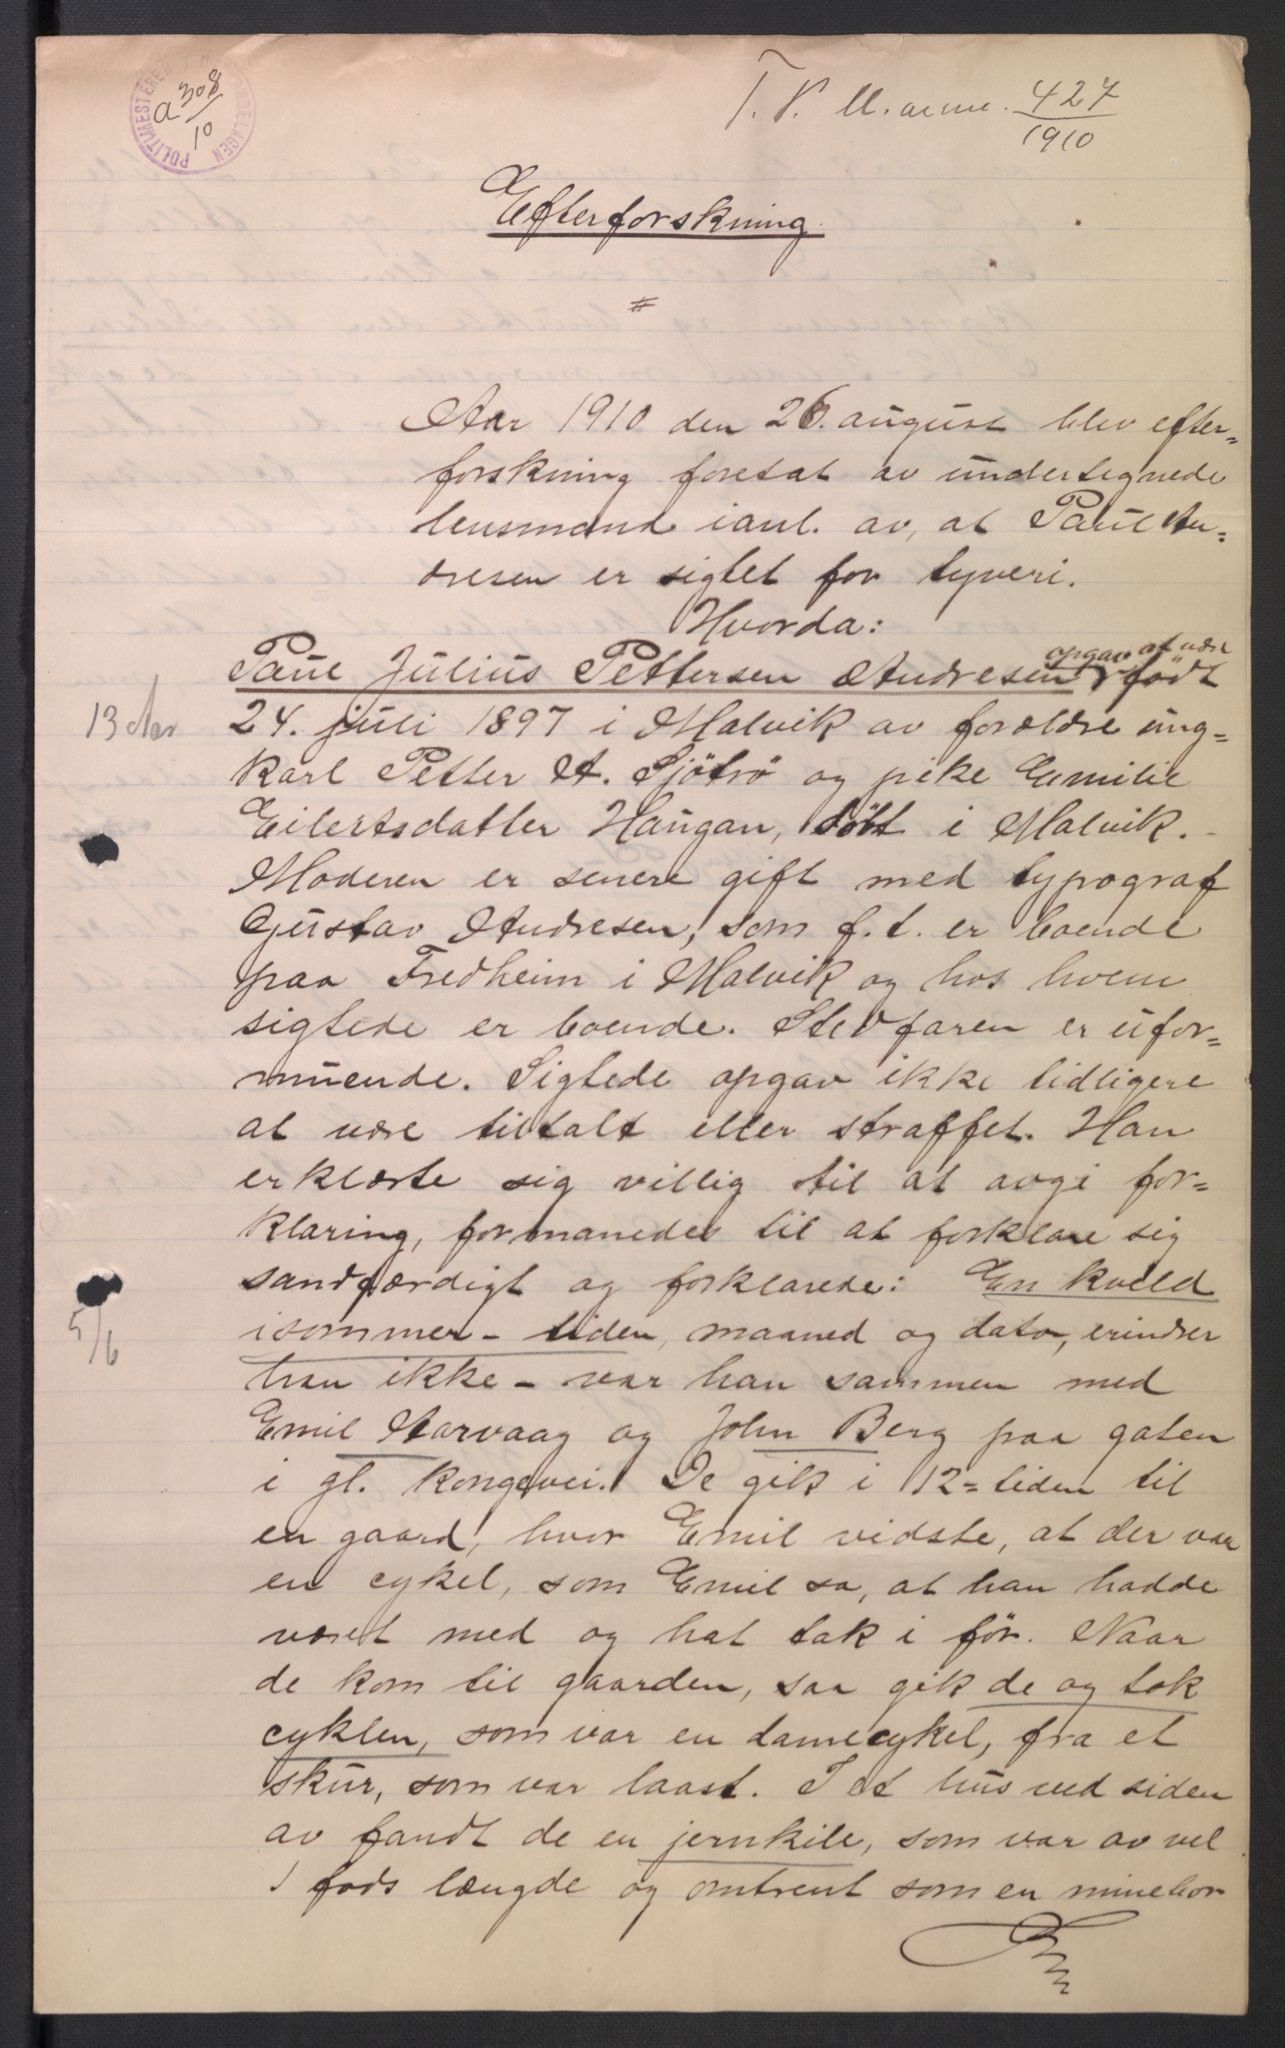 a 308/10
427
1910
Efterforskning.
#
Aar 1910 den 26. august blev efter=
forskning foretat av undertegnede
lensmand i anl. av, at Paul An=
dresen er sigtet for tyveri.
Hvorda:
opgav at være
Paul Julius Pettersen Andresen født
13 Aar
24. juli 1897 i Malvik av forældre ung=
karl Petter A. Sjötrö og pike Emilie
Eilertsdatter Haugan, døbt i Malvik.
Moderen er senere gift med typograf
Gustav Andresen, som f. t. er boende
paa Fredheim i Malvik og hos hvem
sigtede er boende. Stedfaren er ufor=
muende. Sigtede opgav ikke tidligere
at være tiltalt eller straffet. Han
erklærte sig villig til at avgi for=
klaring, formanedes til at forklare sig
sandfærdigt og forklarede: En kveld
5/6
isommer- tiden, maaned og dato, erindrer
han ikke - var han sammen med
Emil Aarvaag og John Berg paa gaten
i gl. kongevei. De gik i 12=tiden til
en gaard, hvor Emil vidste, at der var
en cykel, som Emil sa, at han hadde
været med og hat tak i før. Naar
de kom til gaarden, saa gik de og tok
cyklen, som var en damecykel, fra et
skur, som var laast. I et hus ved siden
av fandt de en jernkile, som var av vel
1 fods længde og omtrent som en minebor